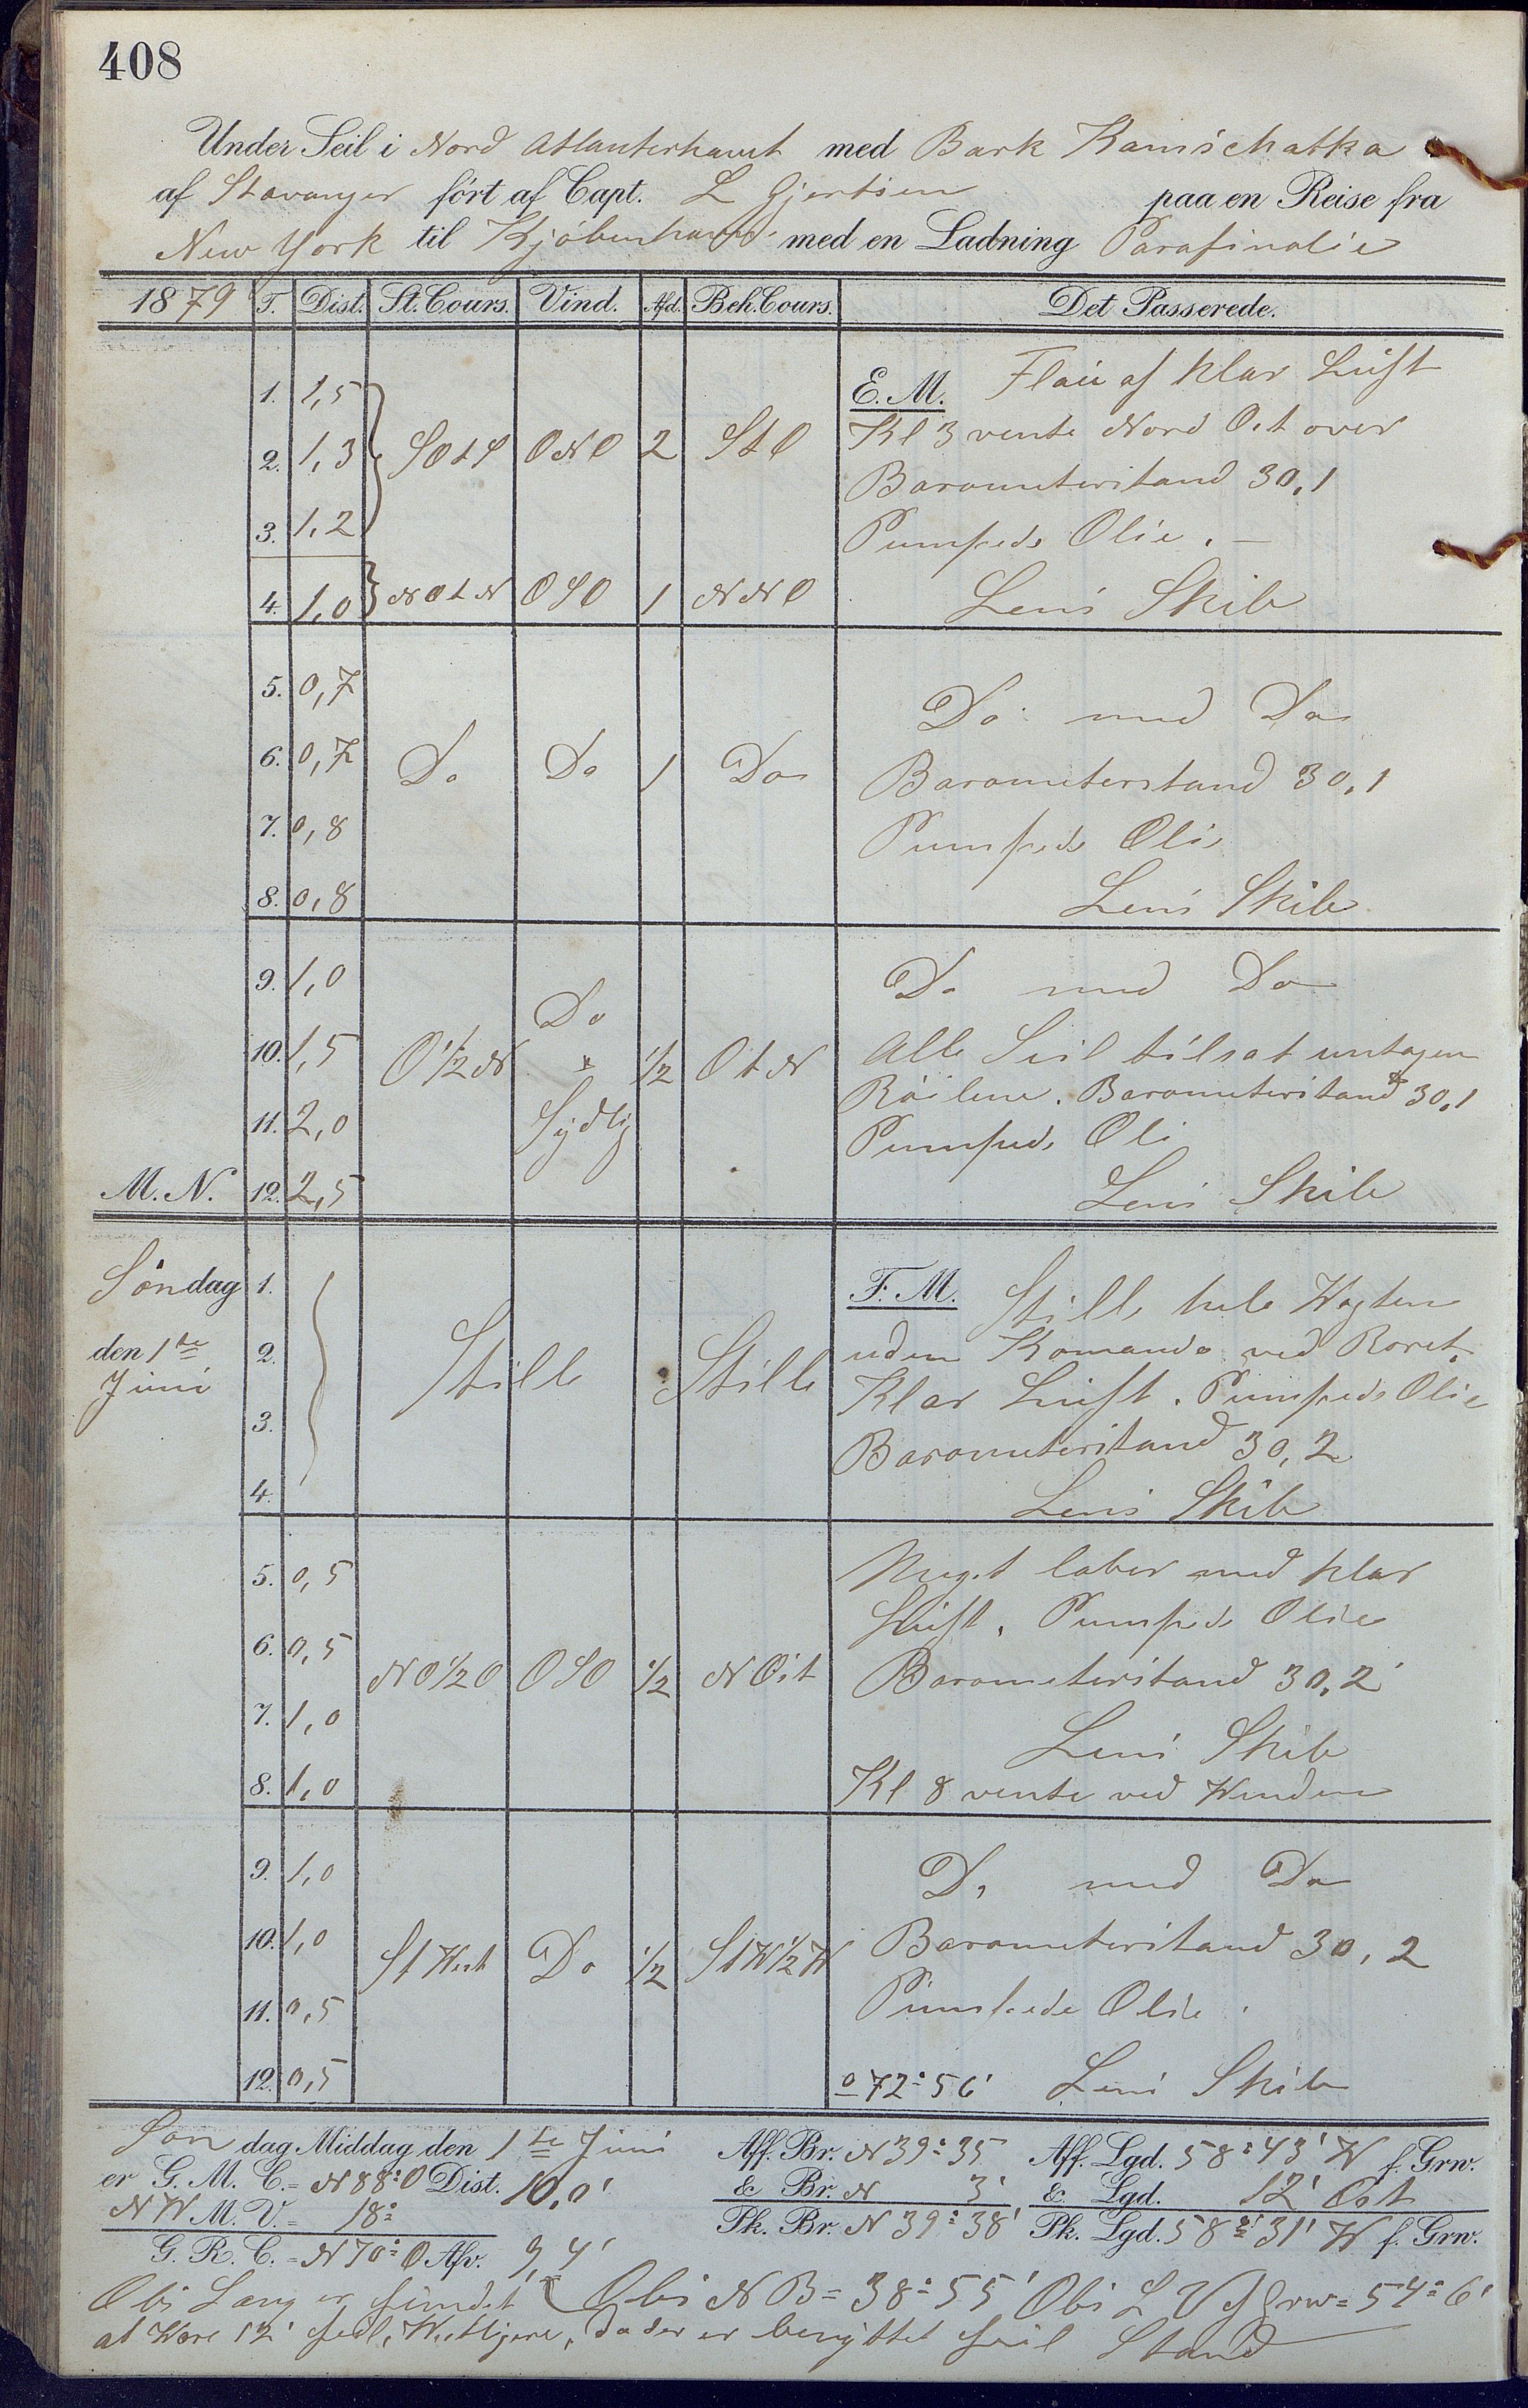 408
Under Seil i Nord Atlanterhavet med Bark Kamschatka
af Stavanger ført af Capt. L Gjertsen paa en Reise fra
New York til Kjøbenhavn med en Ladning Parafinolie
1879 T. Dist. St. Cours. Vind. Afd. Beh. Cours. Det Passerede.
1. 1,5 E. M. Flau af klar Luft
2. 1,3 SOtS ONO 2 StO Kl 3 vente Nord Ost over
Barometerstand 30,1
3. 1,2 Pumpede Olie. —
4. 1,0 NOtN OSO 1 NNO Lens Skib
5. 0,7 Do med Do
6. 0,7 Do Do 1 Do Barometerstand 30,1
7. 0,8 Pumpede Olie
8. 0,8 Lens Skib
9. 1,0 Do med Do
10. 1,5 O 1/2 N Do 1/2 OtN Alle Seil tilsat untagen
Røilene. Barometerstand 30,1
11. 2,0 Sydlig Pumpede Oli
M. N. 12. 2,5 Lens Skib
Søndag 1. F. M. Stille hele Wagten
den 1te 2. Stille Stille uden Komando ved Roret.
Juni Klar Luft. Pumpede Olie
3. Barometerstand 30,2
4. Lens Skib
5. 0,5 Meget laber med klar
6. 0,5 Luft. Pumpede Olie
NO 1/2 O OSO 1/2 NOst Barometerstand 30,2
7. 1,0 Lens Skib
8. 1,0 Kl 8 vente ved Winden
9. 1,0 Do med Do
10. 1,0 St West Do 1/2 StW 1/2 W Barometerstand 30,2
11. 0,5 Pumpede Olie.
12. 0,5 o 72° 56' Lens Skib
Søn dag Middag den 1te Juni Aff. Br. N 39° 35 Aff. Lgd. 58° 43' W f. Grw.
er G. M. C. = N 88° O Dist. 10,0' & Br. N 3' & Lgd. 12' Ost
NW M. V. = 18° Pk. Br. N 39° 38' Pk. Lgd. 58° 31' W f. Grw.
G. R. C. = N 70° O Afv. 9,4'
Obs Læng er fundet Obs N B = 38° 55' Obs L V f Grw = 54° 6'
at Være 12' feil, Westligere, da der er benyttet feil Stand